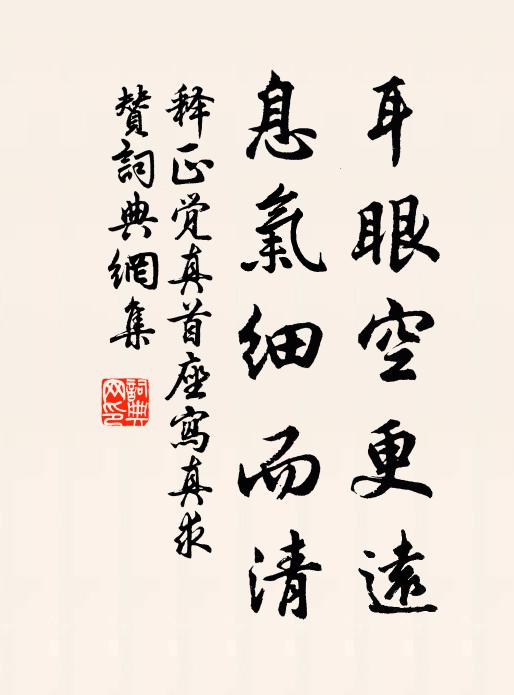 耳眼空更遠
息氣細而清
释正觉真首座寫真求
賛詞典網集
詞典
网印